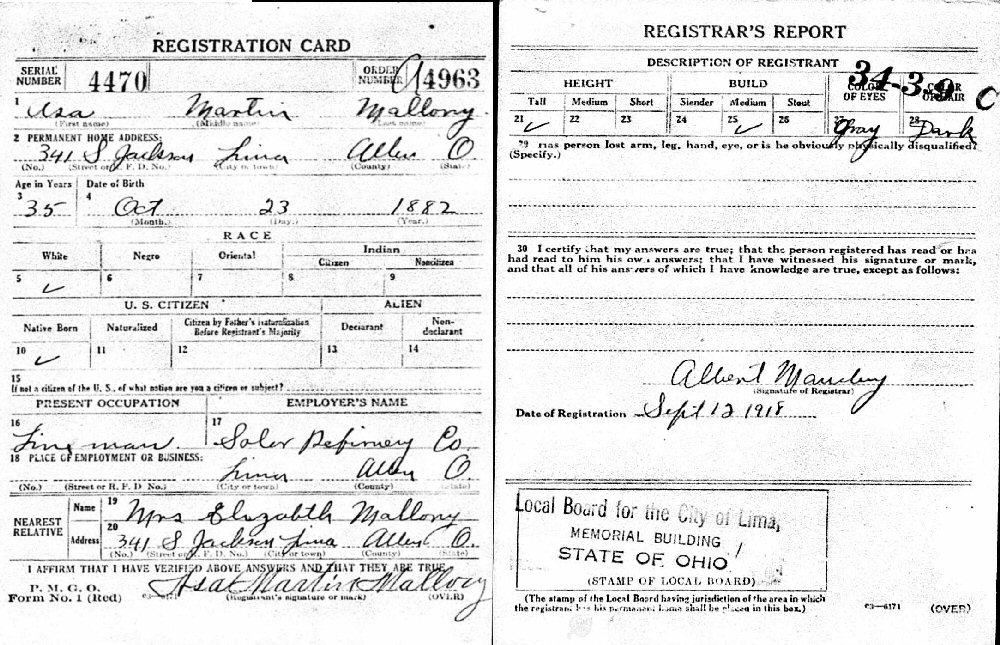 REGISTRATION CARD
SERIAL NUMBER 4470 ORDER NUMBER A 4963
1 Asa Martin Mallony
(First name) (Middle name) (Last name)
2 PERMANENT HOME ADDRESS:
341 S Jackson Lima Allen O
(No.) (Street or R. F. D. No.) (City or town) (County) (State)
Age in Years Date of Birth
3 35 4 Oct 23 1882
(Month.) (Day.) (Year.)
RACE
White Negro Oriental Indian
Citizen Noncitizen
5 ✓ 6 7 8 9
U. S. CITIZEN ALIEN
Native Born Naturalized Citizen by Father's Naturalization Before Registrant's Majority Declarant Non-declarant
10 ✓ 11 12 13 14
15
If not a citizen of the U. S., of what nation are you a citizen or subject?
PRESENT OCCUPATION EMPLOYER'S NAME
16 Fireman 17 Solar Refinery Co.
18 PLACE OF EMPLOYMENT OR BUSINESS:
Lima Allen O.
(No.) (Street or R. F. D. No.) (City or town) (County) (State)
NEAREST RELATIVE
Name 19 Mrs Elizabeth Mallony
Address 20 341 S Jackson Lima Allen O.
(No.) (Street or R. F. D. No.) (City or town) (County) (State)
I AFFIRM THAT I HAVE VERIFIED ABOVE ANSWERS AND THAT THEY ARE TRUE
P. M. G. O.
Form No. 1 (Red) 03—6171 Asa Martin Mallory
(Registrant's signature or mark) (OVER)
REGISTRAR'S REPORT
DESCRIPTION OF REGISTRANT
34-3-9 C
HEIGHT BUILD COLOR OF EYES COLOR OF HAIR
Tall Medium Short Slender Medium Stout
21 ✓ 22 23 24 25 ✓ 26 27 Gray 28 Dark
29 Has person lost arm, leg, hand, eye, or is he obviously physically disqualified?
(Specify.)
30 I certify that my answers are true; that the person registered has read or has
had read to him his own answers; that I have witnessed his signature or mark,
and that all of his answers of which I have knowledge are true, except as follows:
Albert
(Signature of Registrar)
Date of Registration Sept 12 1918
Local Board for the City of Lima,
MEMORIAL BUILDING
STATE OF OHIO
(STAMP OF LOCAL BOARD)
(The stamp of the Local Board having jurisdiction of the area in which
the registrant has his permanent home shall be placed in this box.)
03—6171 (OVER)